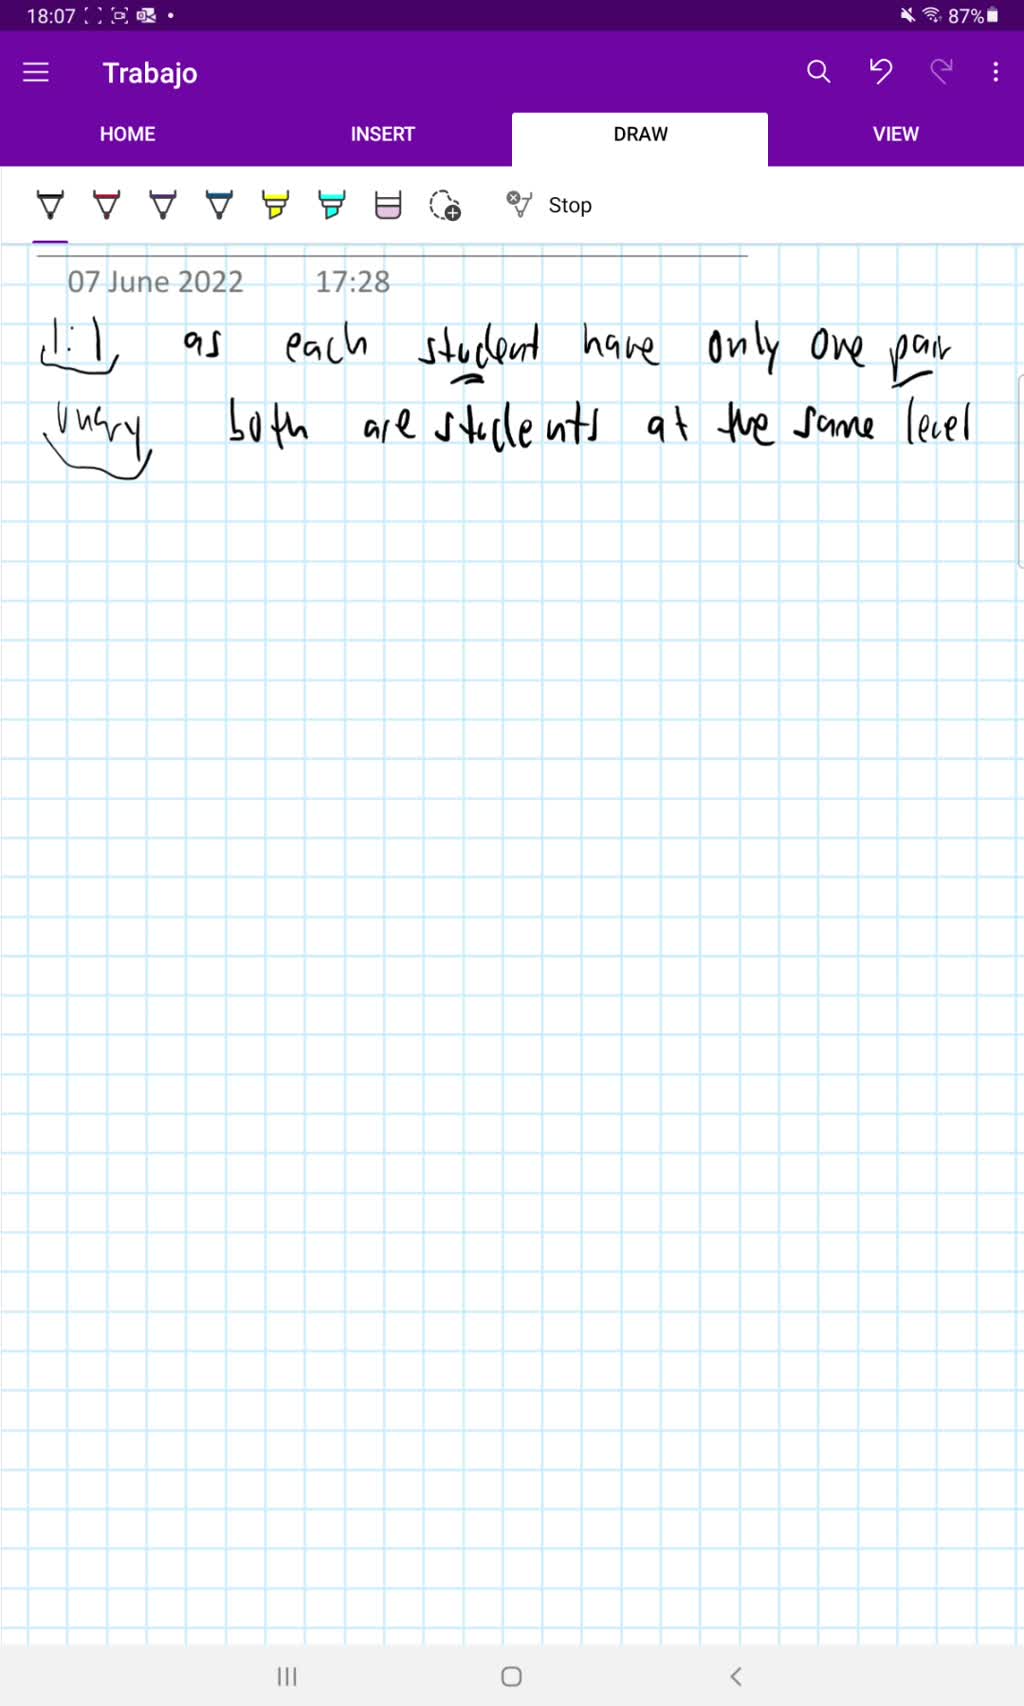 18:07 87%
Trabajo
HOME INSERT DRAW VIEW
Stop
07 June 2022 17:28
1:1 as each student have only one pair
Unary both are students at the same level